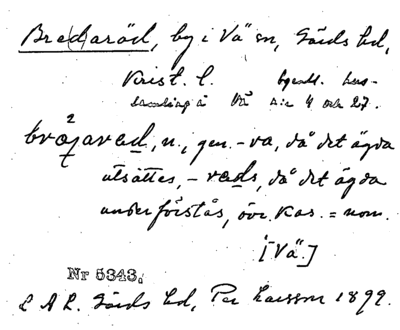 Bred(a)röd, by i Vä sn, Gärds hd,
Krist. l. bymdl. hus-
samling å Vä n:r 4 och 27.
bröavad, n., gen. -va, då det ägda
utsättes, -vads, då det ägda
underförstås, övr. kas. = nom.
[Vä.]
Nr 5343.
L A L. Gärds hd, Per Larsson 1899.